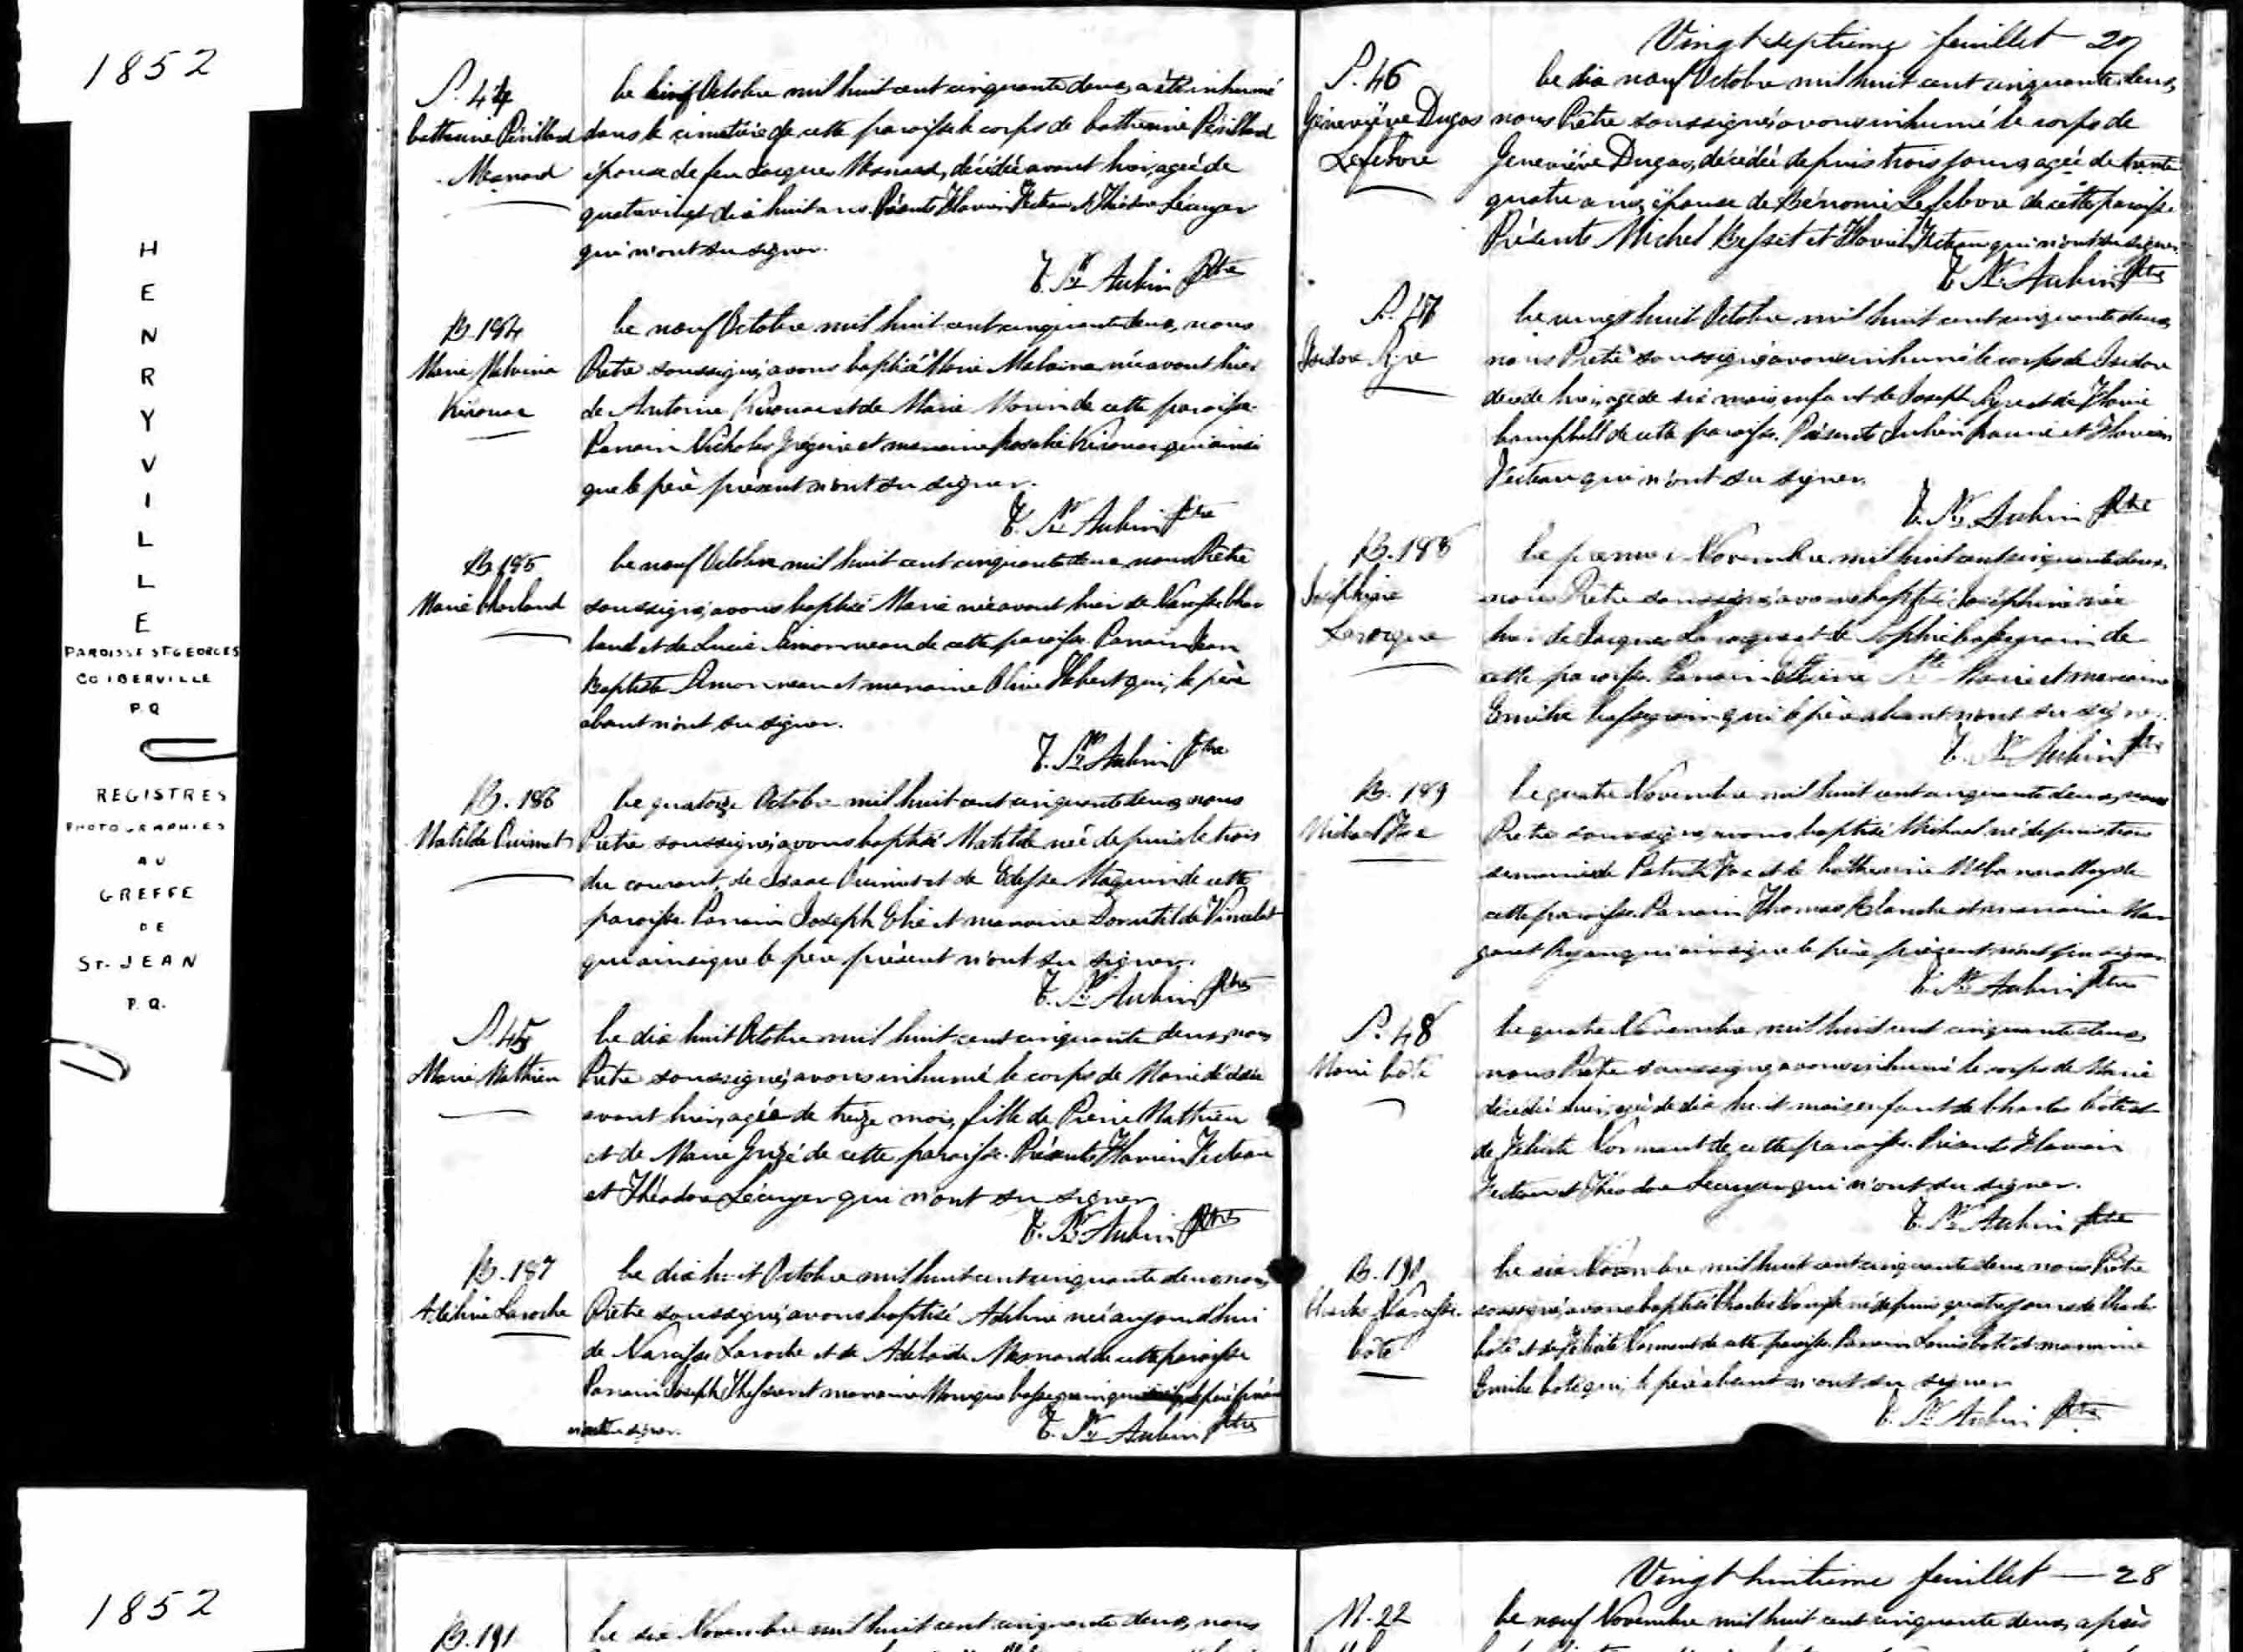 1852
HENRYVILLE
PAROISSE ST GEORGES
CO IBERVILLE
P.Q
REGISTRES
PHOTOGRAPHIES
AU
GREFFE
DE
ST. JEAN
P.Q.
S. 44
Catherine Périllard
Mesnard
Le Octobre mil huit cent cinquante deux, a été inhumé
dans le cimetière de cette paroisse le corps de Catherine Périllard
épouse de feu Jacques Mesnard, décédée avant hier, agée de
quatrevingt dix huit ans. Présents Flavien Fecteau et Théodore Lécuyer
qui n'ont su signer.
T. St Aubin Ptre
B. 184
Marie Malvina
Kirouac
Le neuf Octobre mil huit cent cinquante deux, nous
Prêtre soussigné, avons baptisé Marie Malvina née avant hier
de Antoine Kirouac et de Marie Morin de cette paroisse.
Parrain Nicholas Grégoire et marraine Kirouac qui ainsi
que le père présent n'ont su signer.
T. St Aubin Ptre
B. 185
Marie Charland
Le neuf Octobre mil huit cent cinquante deux nous Prêtre
soussigné, avons baptisé Marie née avant hier de Narcisse Char
land et de Lucie Simonneau de cette paroisse. Parrain Jean
Baptiste Simonneau et marraine Olive Hebert qui, le père
absent n'ont su signer.
T. St Aubin Ptre
B. 186
Matilde Ouimet
Le quatorze Octobre mil huit cent cinquante deux, nous
Prêtre soussigné, avons baptisé Matilde née depuis le trois
du courant, de Isaac Ouimet et de Edesse de cette
paroisse. Parrain Joseph et marraine Domitilde
qui ainsi que le père présent n'ont su signer.
T. St Aubin Ptre
S. 45
Marie Mathieu
Le dix huit Octobre mil huit cent cinquante deux, nous
Prêtre soussigné, avons inhumé le corps de Marie décédée
avant hier, agée de treize mois, fille de Pierre Mathieu
et de Marie de cette paroisse. Présents Flavien Fecteau
et Théodore Lécuyer qui n'ont su signer
T. St Aubin Ptre
B. 187
Adéline Laroche
Le dix huit Octobre mil huit cent cinquante deux nous
Prêtre soussigné, avons baptisé Adéline née aujourd'hui
de Narcisse Laroche et de Adélaïde Mesnard de cette paroisse
Parrain Joseph et marraine Monique qui le père
n'ont su signer.
T. St Aubin Ptre
Vingt septième feuillet 27
S. 46
Géneviève Dugas
Lefebvre
Le dix neuf Octobre mil huit cent cinquante deux,
nous Prêtre soussigné, avons inhumé le corps de
Geneviève Dugas, décédée depuis trois jours, agée de trente
quatre ans, épouse de Bénomi Lefebvre de cette paroisse.
Présents Michel Bessett et Flavien Fecteau qui n'ont su signer.
T. St Aubin Ptre
S. 47
Isidore
Le vingt huit Octobre mil huit cent cinquante deux,
nous Prêtre soussigné avons inhumé le corps de Isidore
décédé hier, agé de six mois, enfant de Joseph et de Flavie
Campbell de cette paroisse. Présents Julien et Flavien
Fecteau qui n'ont su signer.
T. St Aubin Ptre
B. 188
Joséphine
Larocque
Le premier Novembre mil huit cent cinquante deux,
nous Prêtre soussigné avons baptisé Joséphine née
hier de Jacques Larocque et de Sophie de
cette paroisse. Parrain Etienne Ste Marie et marraine
Emilie qui le père absent n'ont su signer.
T. St Aubin Ptre
B. 189
Michael
Le quatre Novembre mil huit cent cinquante deux, nous
Prêtre soussigné, avons baptisé Michael né depuis trois
semaines de Patrick et de Catherine de
cette paroisse. Parrain Thomas et marraine Mar
garet Ryan qui ainsi que le père présent n'ont su signer
T. St Aubin Ptre
S. 48
Marie Côté
Le quatre Novembre mil huit cent cinquante deux,
nous Prêtre soussigné avons inhumé le corps de Marie
décédée hier, agée de dix huit mois enfant de Charles Côté et
de Félicité Normant de cette paroisse. Présents Flavien
Fecteau et Théodore Lécuyer qui n'ont su signer.
T. St Aubin Ptre
B. 190
Charles Narcisse
Côté
Le six Novembre mil huit cent cinquante deux nous Prêtre
soussigné, avons baptisé Charles Narcisse né depuis quatre jours de Charles
Côté et de Félicité Normant de cette paroisse. Parrain Louis Côté et marraine
Emilie Côté qui, le père absent n'ont su signer
T. St Aubin Ptre
1852
B. 191
Le six Novembre mil huit cent cinquante deux, nous
Vingt huitième feuillet — 28
M. 22
Le neuf Novembre mil huit cent cinquante deux, après